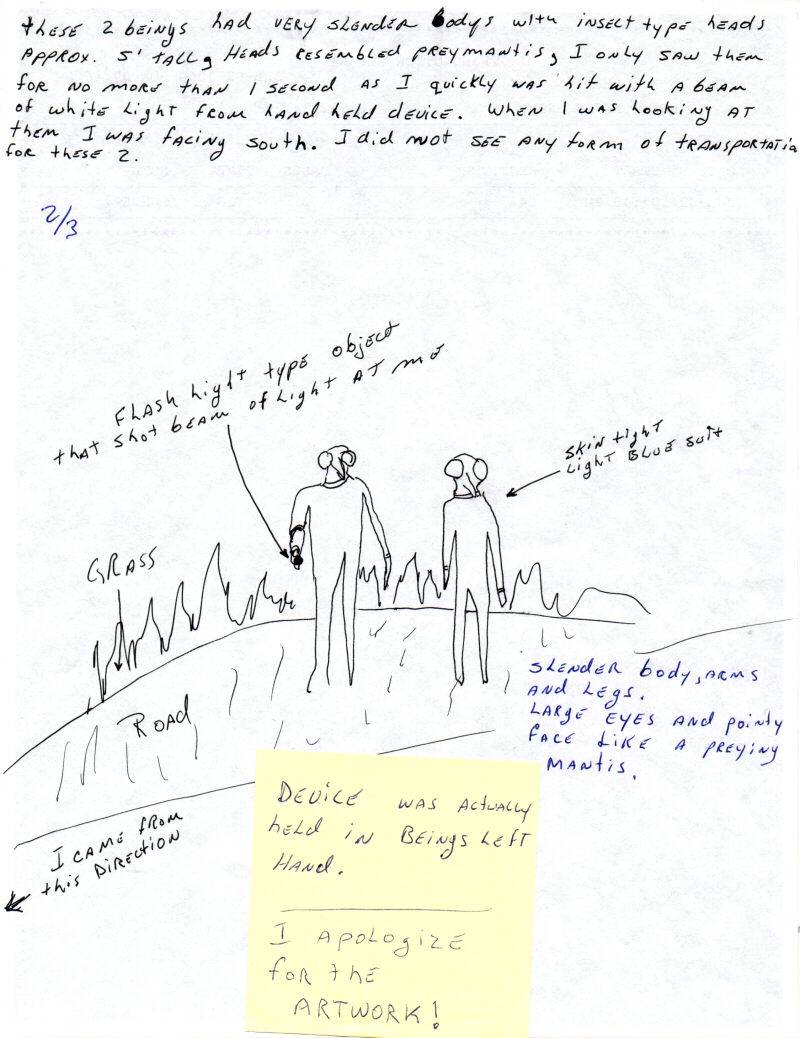 these 2 beings had very slender bodys with insect type heads
approx. 5' tall, heads resembled preymantis, I only saw them
for no more than 1 second as I quickly was hit with a beam
of white light from hand held device. When I was looking at
them I was facing south. I did not see any form of transportatio
for these 2.
2/3
Flash light type object
that shot beam of light at me
skin tight
light blue suit
Grass
Road
slender body, arms
and legs.
Large eyes and pointy
face like a preying
mantis.
I came from
this direction
Device was actually
held in beings left
hand.
I apologize
for the
artwork!